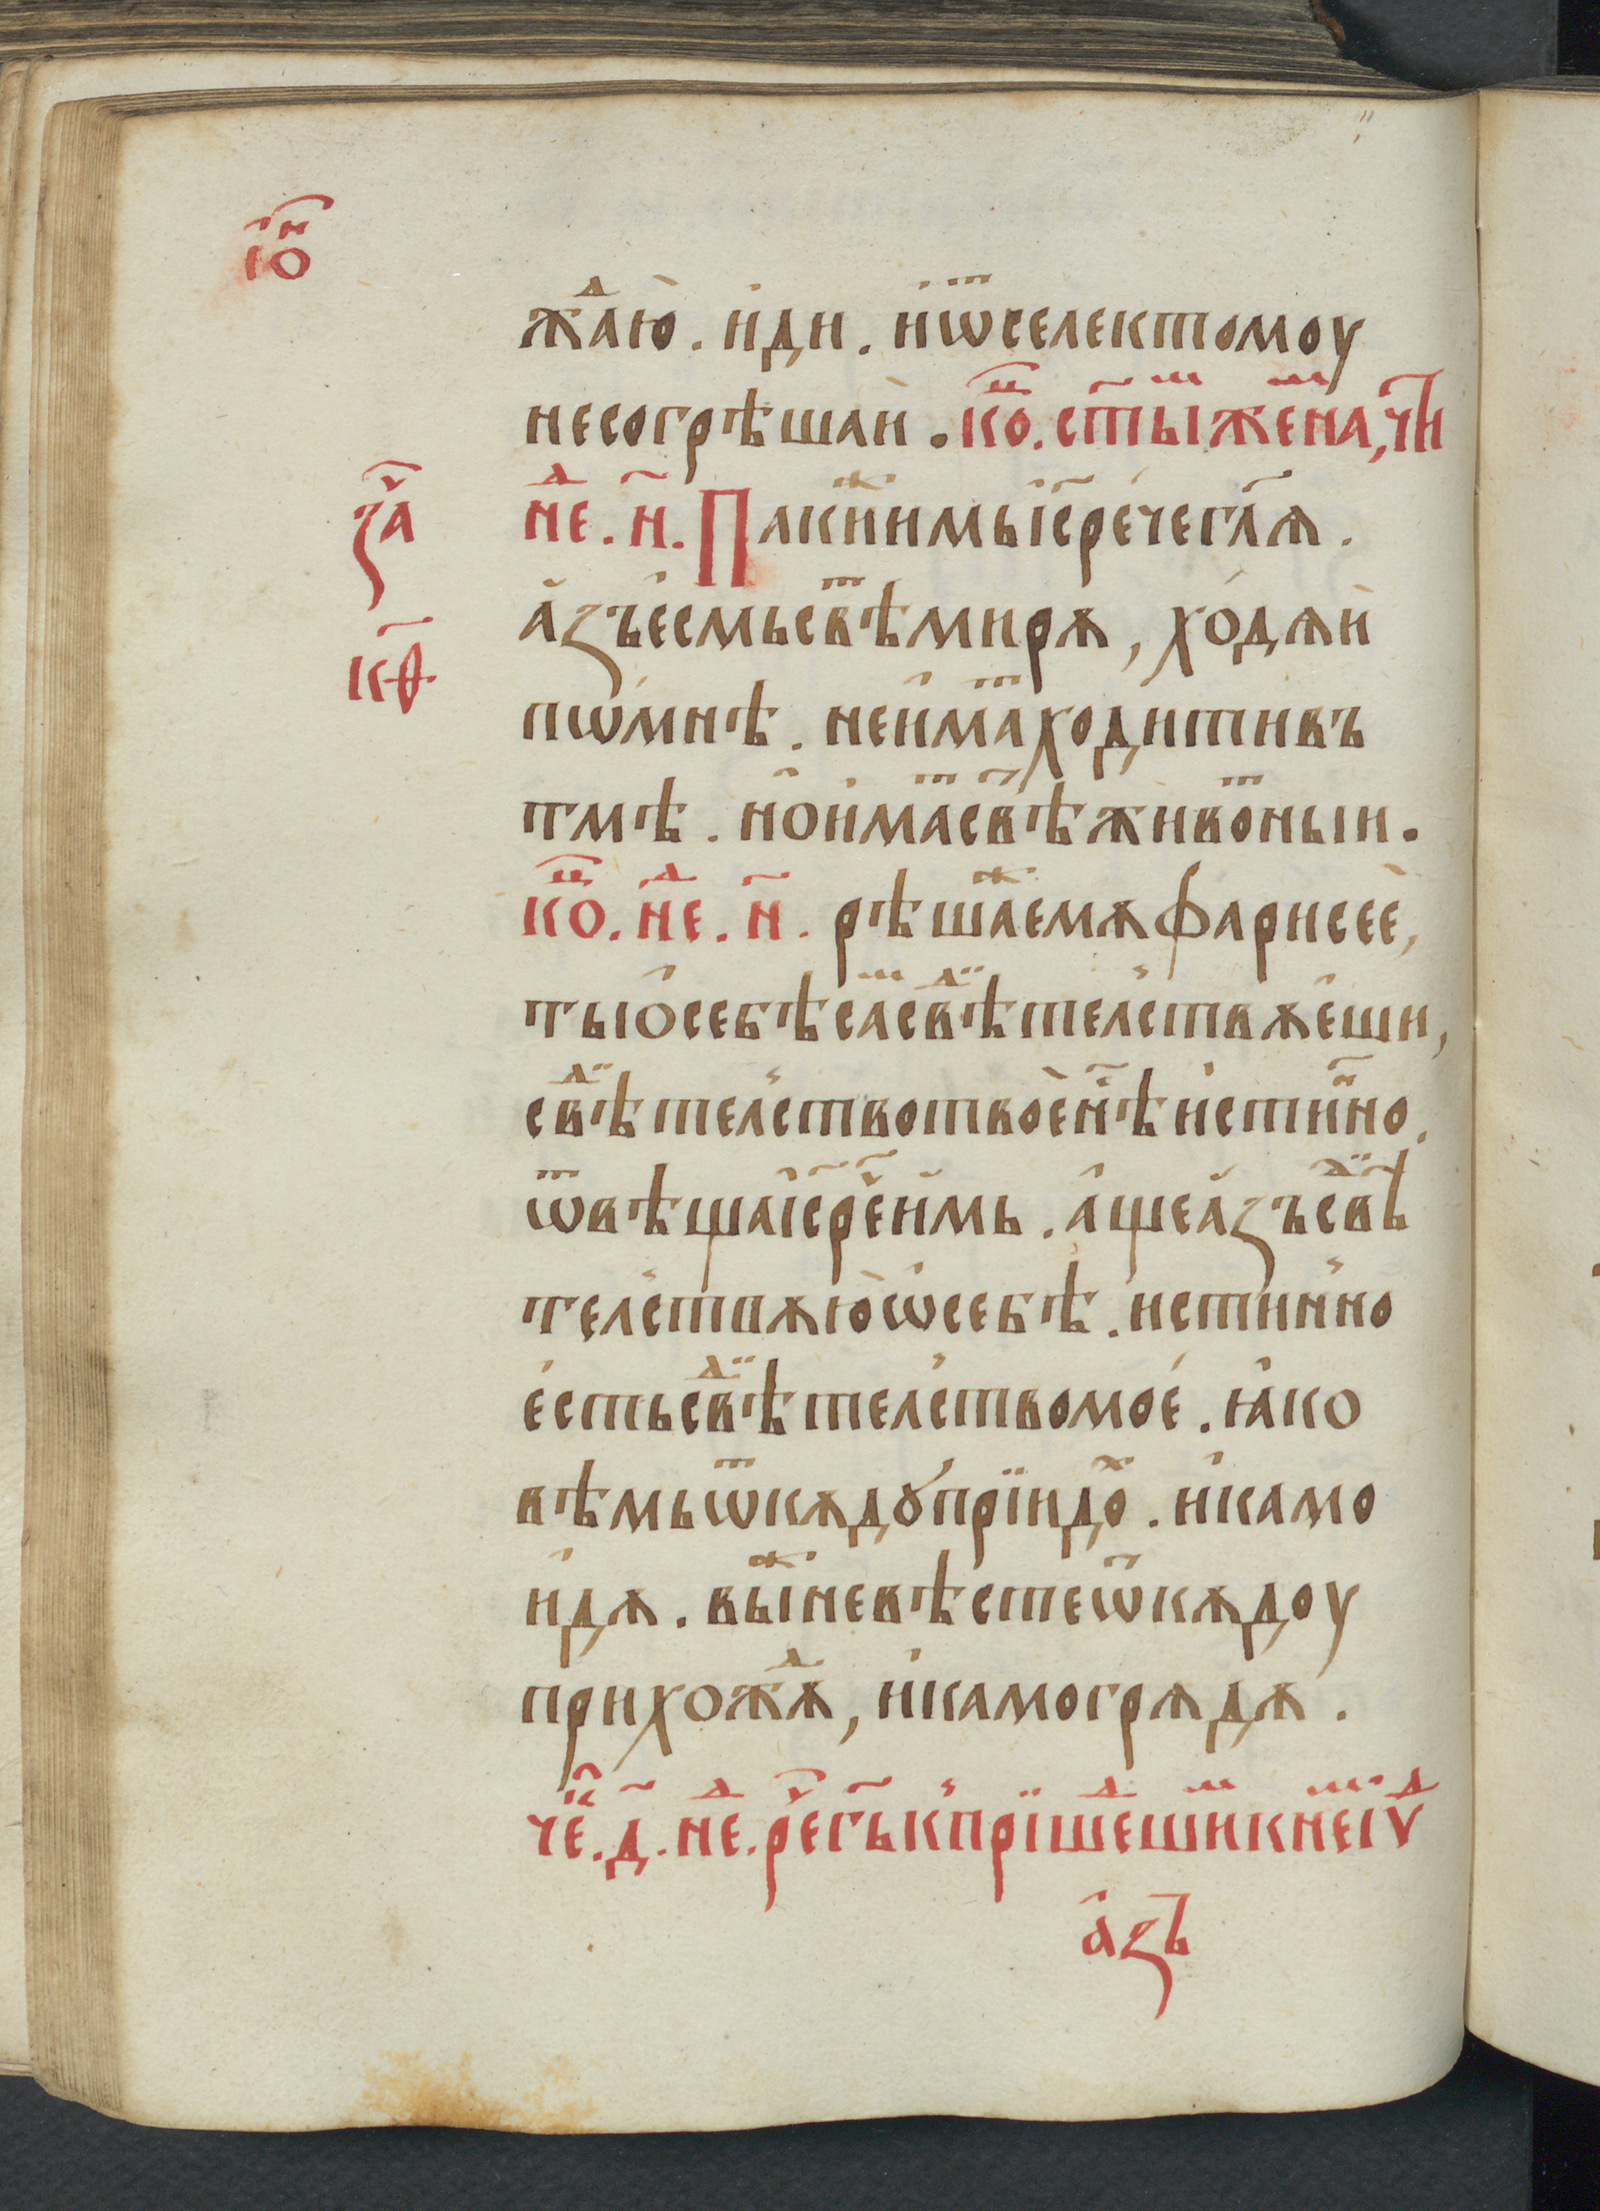 їѡ҃ⷩ
жⷣаю̀ . и҆ди . и҆ѿселектомоу
несогрѣшаѝ . коⷰ҇ . ст҃ыⷨ женаⷨ , чтⷩ҇и
заⷱ҇
кѳ҃
неⷣ . н҃ . Пакиⷤимыⷭ҇речегл҃ѧ .
а҆зъе҆смьсвѣⷮмирѫ , хо́дѧи
пѡ́мнѣ . неи҆маⷮходитивъ
тмѣ . но̑и҆маⷮсвѣⷮживоⷮныи .
коⷰ҇ . неⷣ . н҃ . рѣшаⷤемѫфарисеѐ ,
тыо̑себѣсаⷨсвѣⷣтел̾ствѫ́еши ,
свѣⷣтел̾ствотвоѐнⷭ҇ѣи҆стинⷩ҇о .
ѿвѣщаі҃срⷱ҇еи҆мь . а҆щеа҆зъсвѣⷣ
тел̾ствѫю̀ѡ҆себѣ . истин̾но
е҆стьсвѣⷣтел̾ствомоѐ . ꙗ҆ко
вѣмьѿкѫдꙋ́прїидоⷯ . и҆камо
и҆дѫ . выⷤневѣстеѿкѫдоу
прихожⷣѫ , и҆камогрѧдѫ .
чеⷦ҇ . д҃ . неⷣ . реⷱ҇гь҃к̾прїшеⷣшиⷨкнеⷨіѵⷣ
а҆зъ